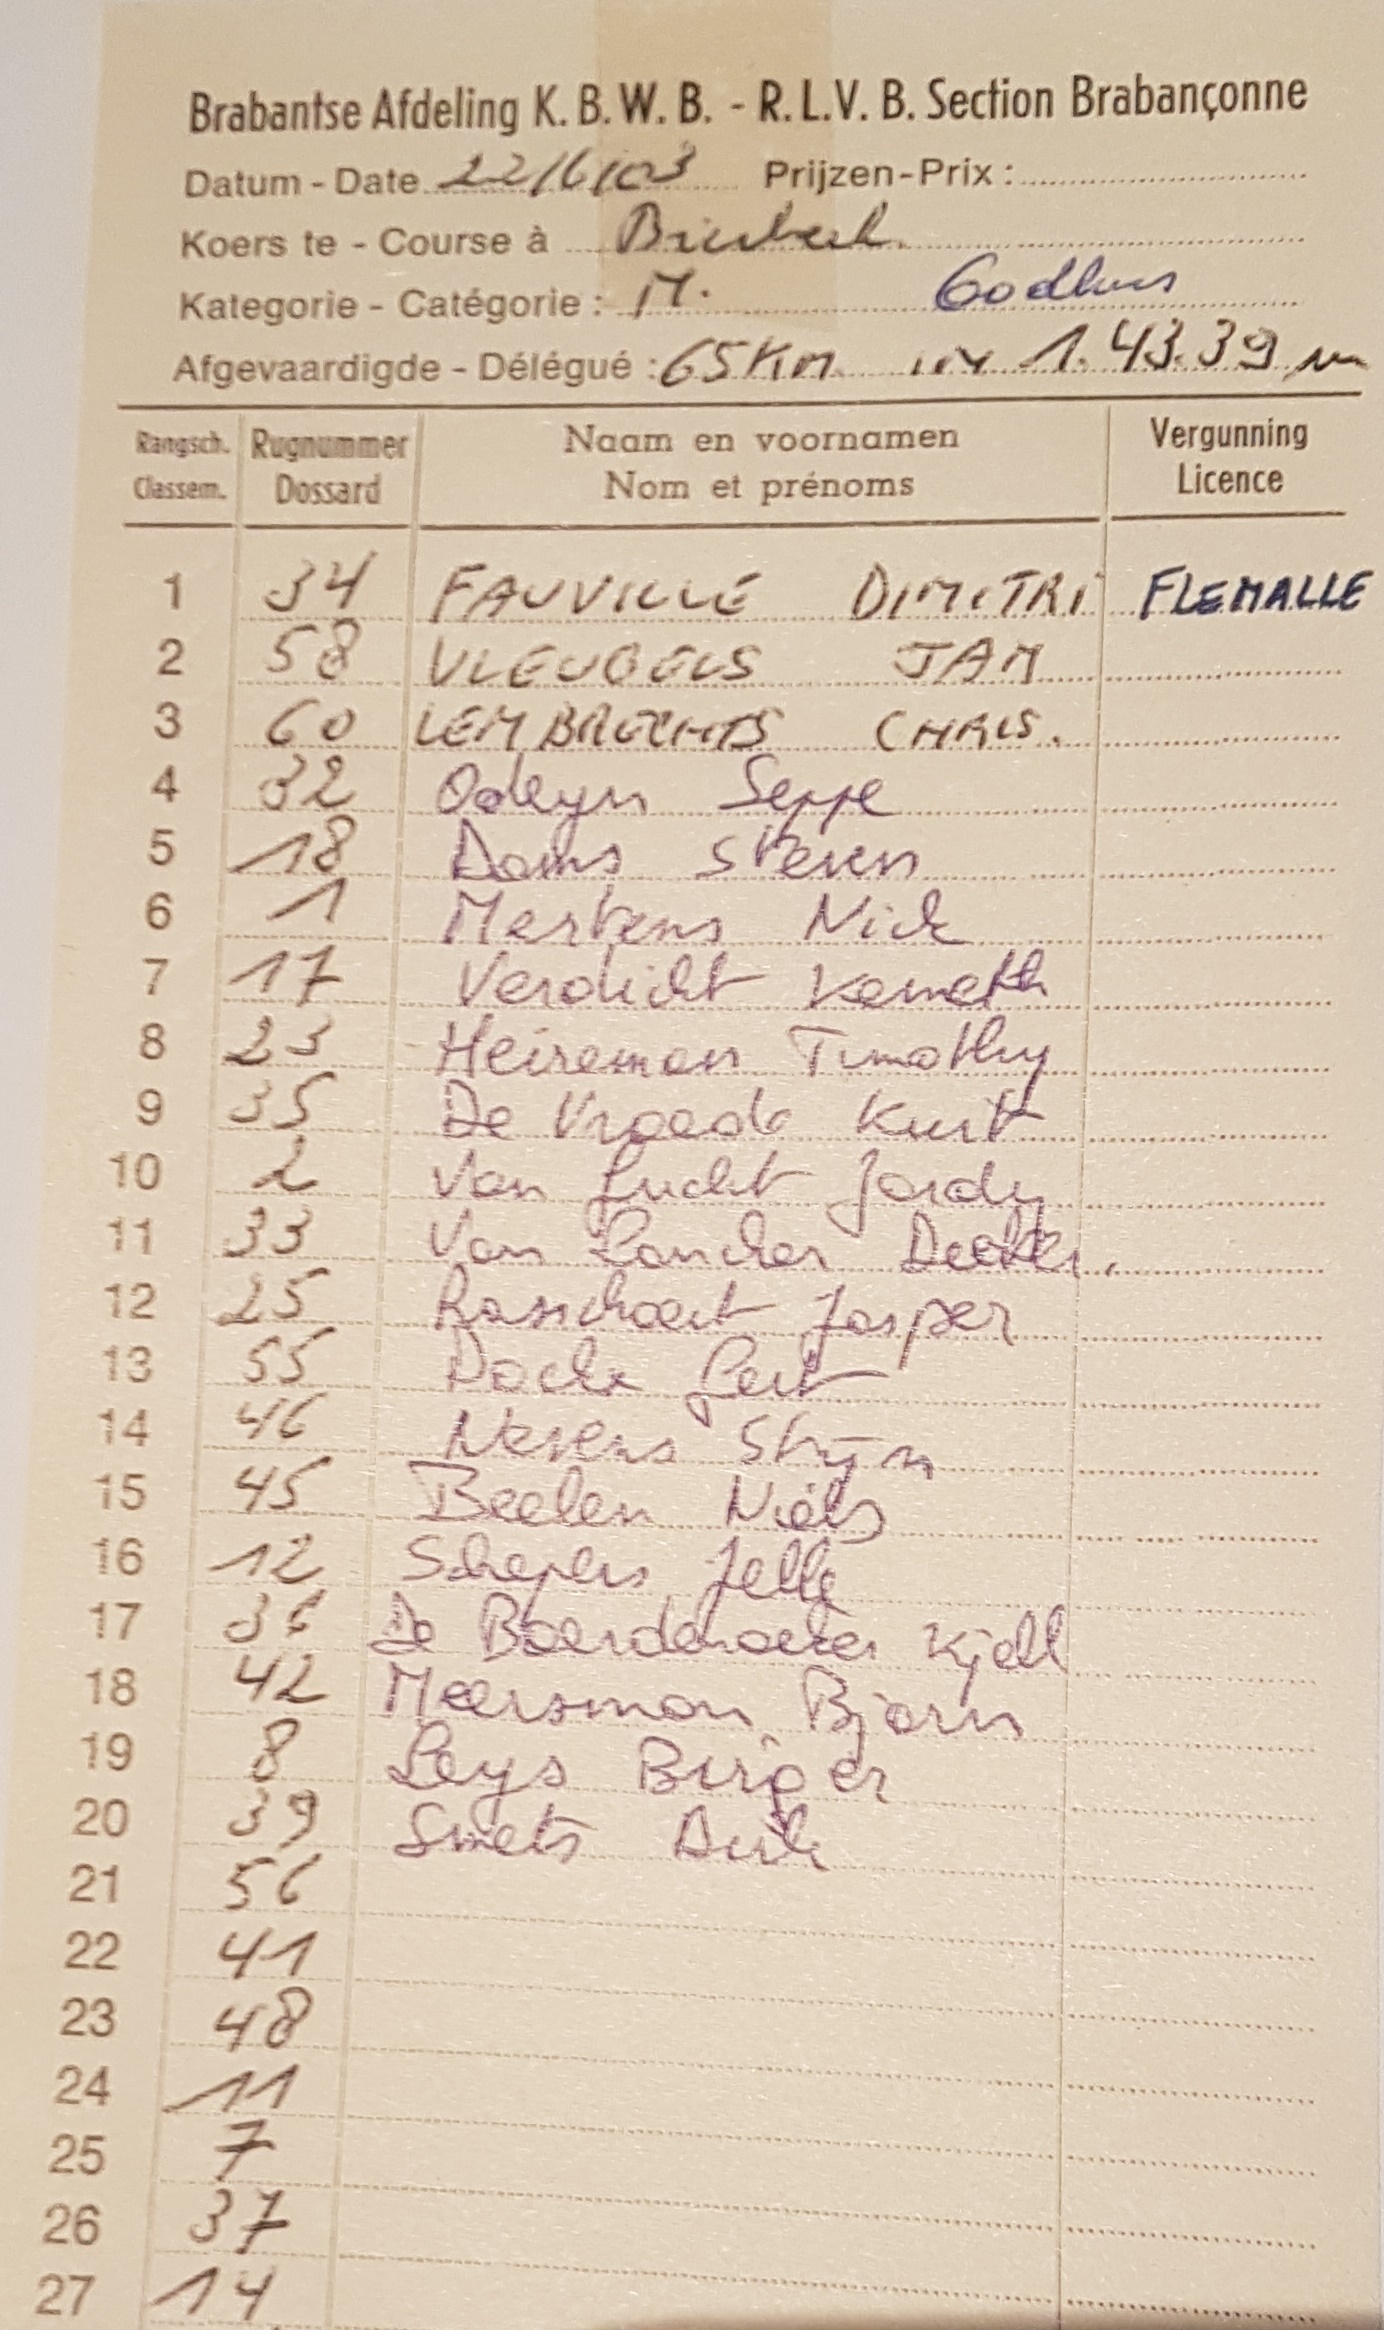 Brabantse Afdeling K.B.W.B. - R.L.V.B. Section Brabançonne
Datum - Date 22/6/03 Prijzen-Prix :
Koers te - Course à
Kategorie - Catégorie : M. Godleus
Afgevaardigde - Délégué : 65km in 1.43.39 m
Rangsch. Rugnummer Naam en voornamen Vergunning
Classem. Dossard Nom et prénoms Licence
1 34 FAUVILLE DIMITRI FLEMALLE
2 58 VLEUGELS JAN
3 60 LEMBRECHTS CHRIS.
4 32 Odeyn Seppe
5 18 Dams Steven
6 1 Mertens Nick
7 17 Verdicht Kenneth
8 23 Heireman Timothy
9 35 De Vreese Kurt
10 2 Van Gucht Jordy
11 33 Van Gander
12 25 Ranschaert Jasper
13 55 Dockx Gert
14 46 Nessens Stijn
15 45 Beelen Niels
16 12 Schepers Jelle
17 36 De Kjell
18 42 Maersman Bjorn
19 8 Leys
20 39 Smets Dirk
21 56
22 41
23 48
24 11
25 7
26 37
27 14